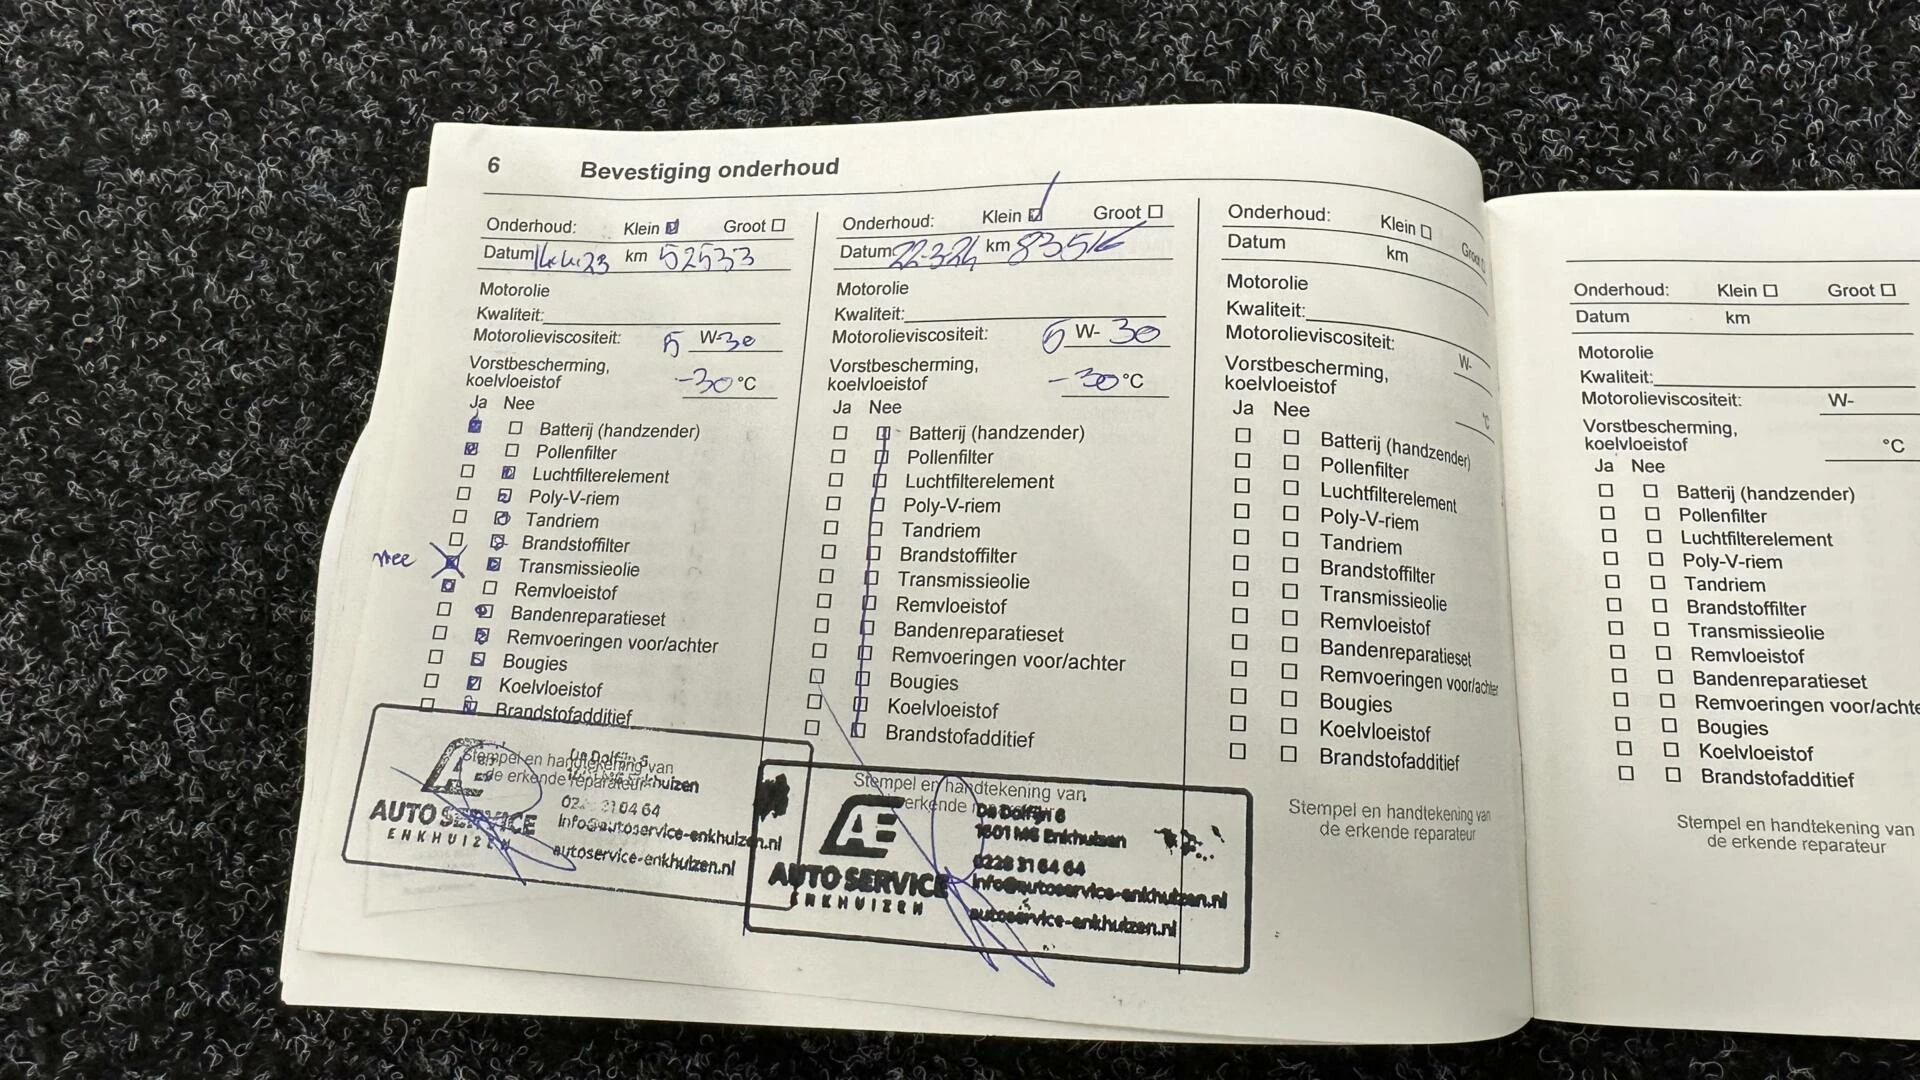 6 Bevestiging onderhoud
Onderhoud: Klein Groot
Datum km 52533
Motorolie
Kwaliteit:
Motorolieviscositeit: 5 W-30
Vorstbescherming,
koelvloeistof -30 °C
Ja Nee
Batterij (handzender)
Pollenfilter
Luchtfilterelement
Poly-V-riem
Tandriem
Brandstoffilter
nee Transmissieolie
Remvloeistof
Bandenreparatieset
Remvoeringen voor/achter
Bougies
Koelvloeistof
Brandstofadditief
Stempel en handtekening van
de erkende reparateur
AE
AUTO SERVICE
ENKHUIZEN
De Dolfijn 6
Enkhuizen
31 04 64
info@autoservice-enkhuizen.nl
autoservice-enkhuizen.nl
Onderhoud: Klein Groot
Datum 22-3-24 km
Motorolie
Kwaliteit:
Motorolieviscositeit: 5 W- 30
Vorstbescherming,
koelvloeistof -30 °C
Ja Nee
Batterij (handzender)
Pollenfilter
Luchtfilterelement
Poly-V-riem
Tandriem
Brandstoffilter
Transmissieolie
Remvloeistof
Bandenreparatieset
Remvoeringen voor/achter
Bougies
Koelvloeistof
Brandstofadditief
Stempel en handtekening van
erkende
AE
AUTO SERVICE
ENKHUIZEN
De Dolfijn 6
1601 ME Enkhuizen
0228 31 64 64
info@autoservice-enkhuizen.nl
autoservice-enkhuizen.nl
Onderhoud: Klein Groot
Datum km
Motorolie
Kwaliteit:
Motorolieviscositeit: W-
Vorstbescherming,
koelvloeistof °C
Ja Nee
Batterij (handzender)
Pollenfilter
Luchtfilterelement
Poly-V-riem
Tandriem
Brandstoffilter
Transmissieolie
Remvloeistof
Bandenreparatieset
Remvoeringen voor/achter
Bougies
Koelvloeistof
Brandstofadditief
Stempel en handtekening van
de erkende reparateur
Onderhoud: Klein Groot
Datum km
Motorolie
Kwaliteit:
Motorolieviscositeit: W-
Vorstbescherming,
koelvloeistof °C
Ja Nee
Batterij (handzender)
Pollenfilter
Luchtfilterelement
Poly-V-riem
Tandriem
Brandstoffilter
Transmissieolie
Remvloeistof
Bandenreparatieset
Remvoeringen voor/achte
Bougies
Koelvloeistof
Brandstofadditief
Stempel en handtekening van
de erkende reparateur